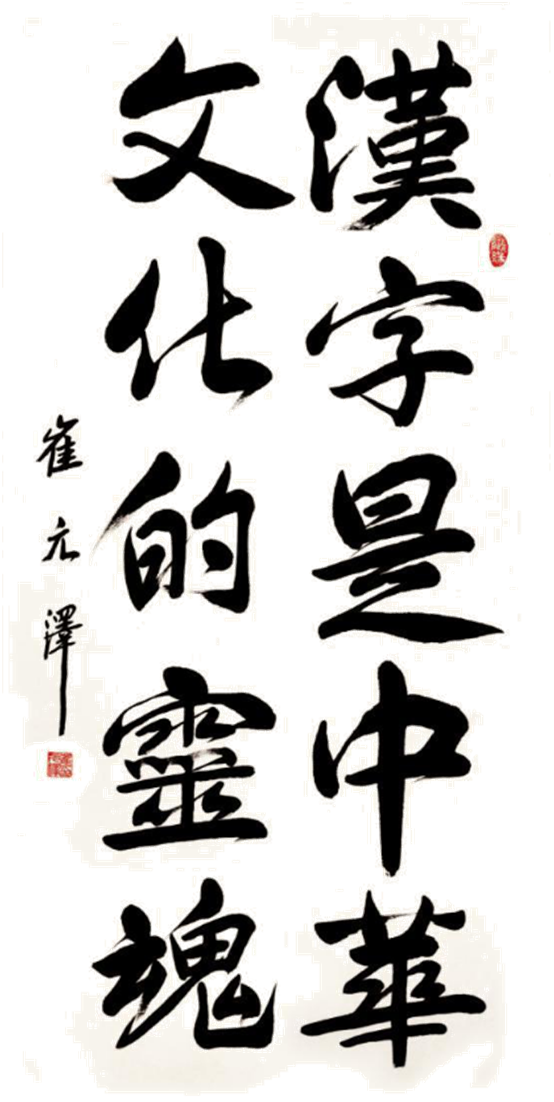 漢字是中華
文化的靈魂
崔元澤